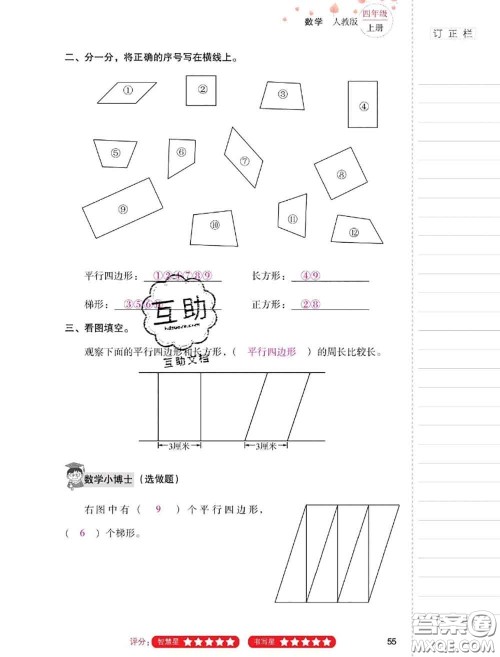 数学 人教版 四年级 上册
订正栏
二、分一分，将正确的序号写在横线上。
① ② ③ ④
⑤ ⑥ ⑦ ⑧
⑨ ⑩ ⑪ ⑫
平行四边形：①②④⑦⑧⑨ 长方形：④⑨
梯形：③⑤⑥ 正方形：②⑧
互助
互助文档
三、看图填空。
观察下面的平行四边形和长方形，（ 平行四边形 ）的周长比较长。
3厘米 3厘米
数学小博士（选做题）
右图中有（ 9 ）个平行四边形，
（ 6 ）个梯形。
评分： 智慧星 ★★★★★ 书写星 ★★★★★
55
答案圈
MXQE.COM